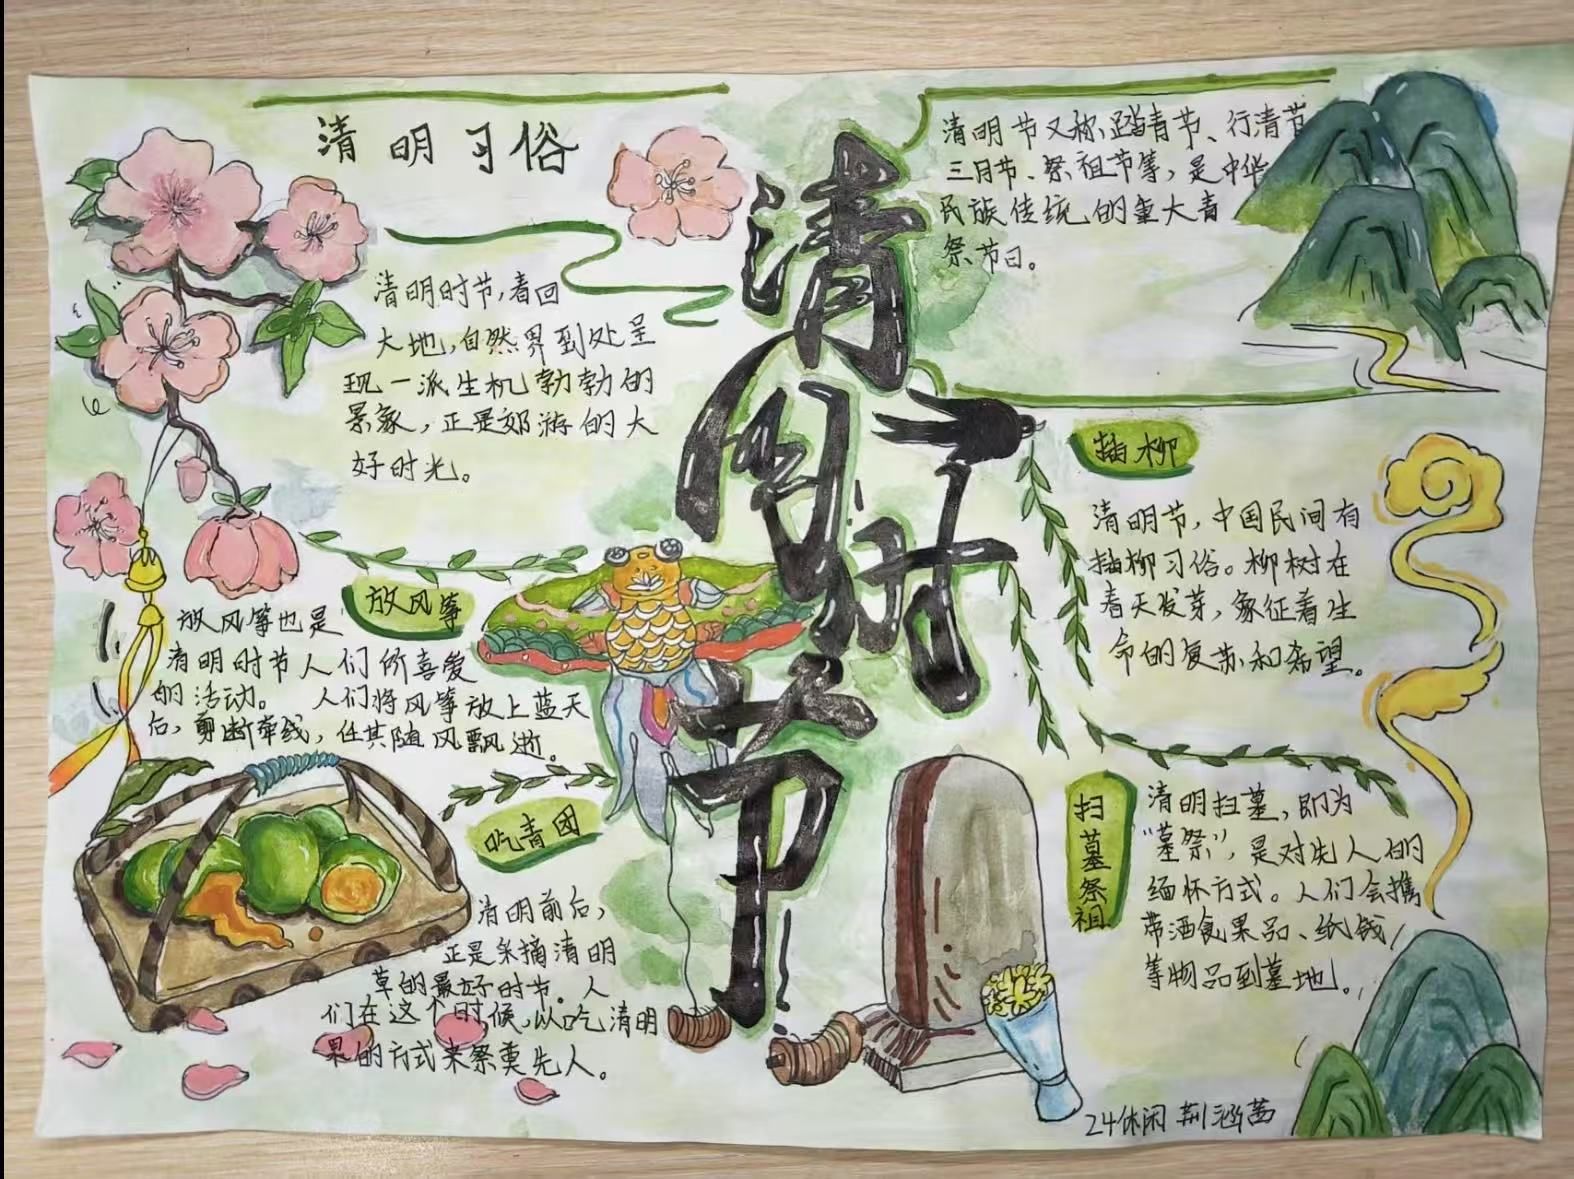 清明习俗
清明时节,春回
大地,自然界到处呈
现一派生机勃勃的
景象,正是郊游的大
好时光。
清明时节
清明节又称踏青节、行清节
三月节、祭祖节等,是中华
民族传统的重大春
祭节日。
放风筝
放风筝也是
清明时节人们所喜爱
的活动。 人们将风筝放上蓝天
后,剪断牵线,任其随风飘逝。
吃青团
清明前后,
正是采摘清明
草的最好时节。人
们在这个时候,以吃清明
果的方式来祭奠先人。
插柳
清明节,中国民间有
插柳习俗。柳树在
春天发芽,象征着生
命的复苏和希望。
扫墓祭祖
清明扫墓,即为
“墓祭”,是对先人的
缅怀方式。人们会携
带酒食果品、纸钱
等物品到墓地。
24休闲 荆涵茜